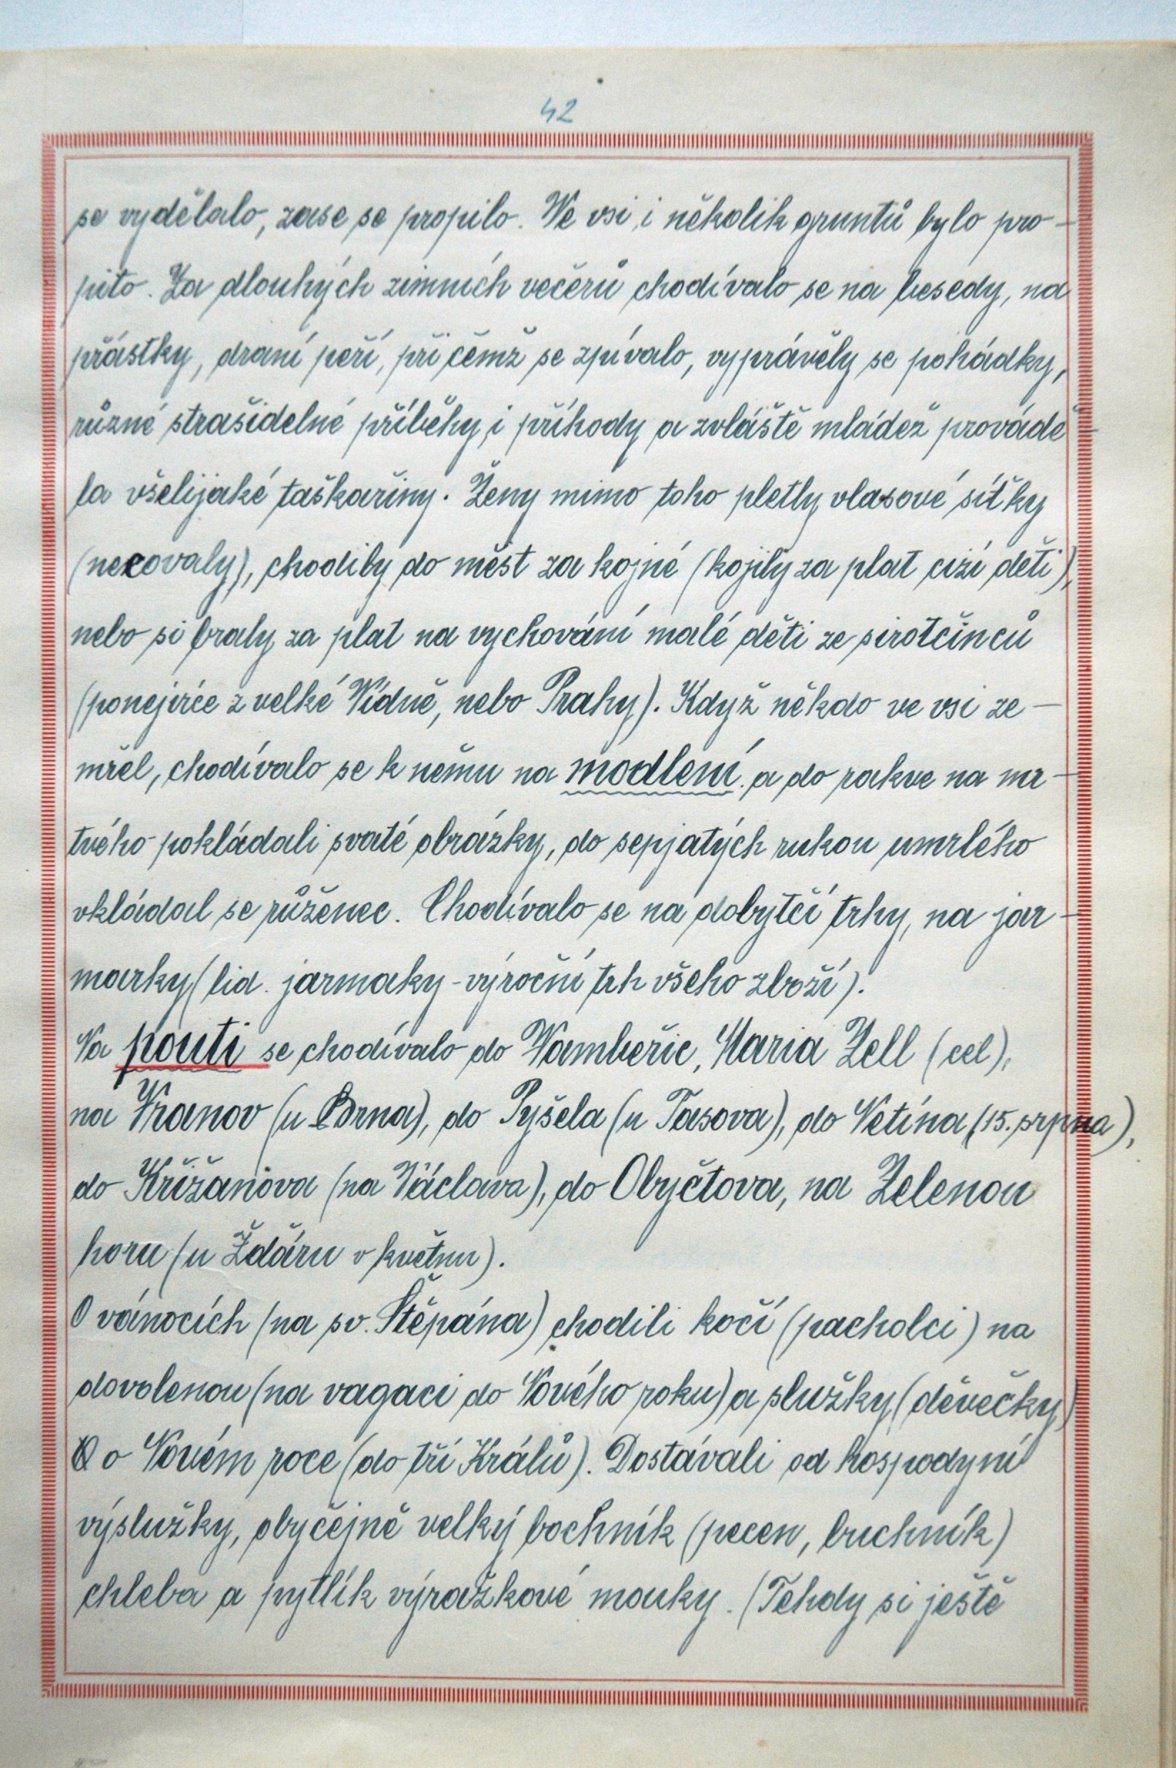 42
se vydělalo, zase se propilo. Ve vsi i několik gruntů bylo pro-
pito. Za dlouhých zimních večerů chodívalo se na besedy, na
přástky, draní peří, při čemž se zpívalo, vyprávěly se pohádky,
různé strašidelné příběhy i příhody a zvláště mládež prováde-
la všelijaké taškařiny. Ženy mimo toho pletly vlasové síťky
(necovaly), chodily do měst za kojné (kojily za plat cizí děti),
nebo si braly za plat na vychování malé děti ze sirotčinců
(ponejvíce z velké Vídně, nebo Prahy). Když někdo ve vsi ze-
mřel, chodívalo se k němu na modlení a do rakve na mr-
tvého pokládali svaté obrázky, do sepjatých rukou umrlého
vkládal se růženec. Chodívalo se na dobytčí trhy, na jar-
marky (lid. jarmaky - výroční trh všeho zboží).
Na pouti se chodívalo do Vambeřic, Maria Zell (cel),
na Vranov (u Brna), do Pyšela (u Tasova), do Netína (15. srpna),
do Křižanova (na Václava), do Obyčtova, na Zelenou
horu (u Žďáru v květnu).
O vánocích (na sv. Štěpána) chodili kočí (pacholci) na
dovolenou (na vagaci do Nového roku) a služky (děvečky)
o Novém roce (do tří Králů). Dostávali od hospodyní
výslužky, obyčejně velký bochník (pecen, buchník)
chleba a pytlík výražkové mouky. (Tehdy si ještě